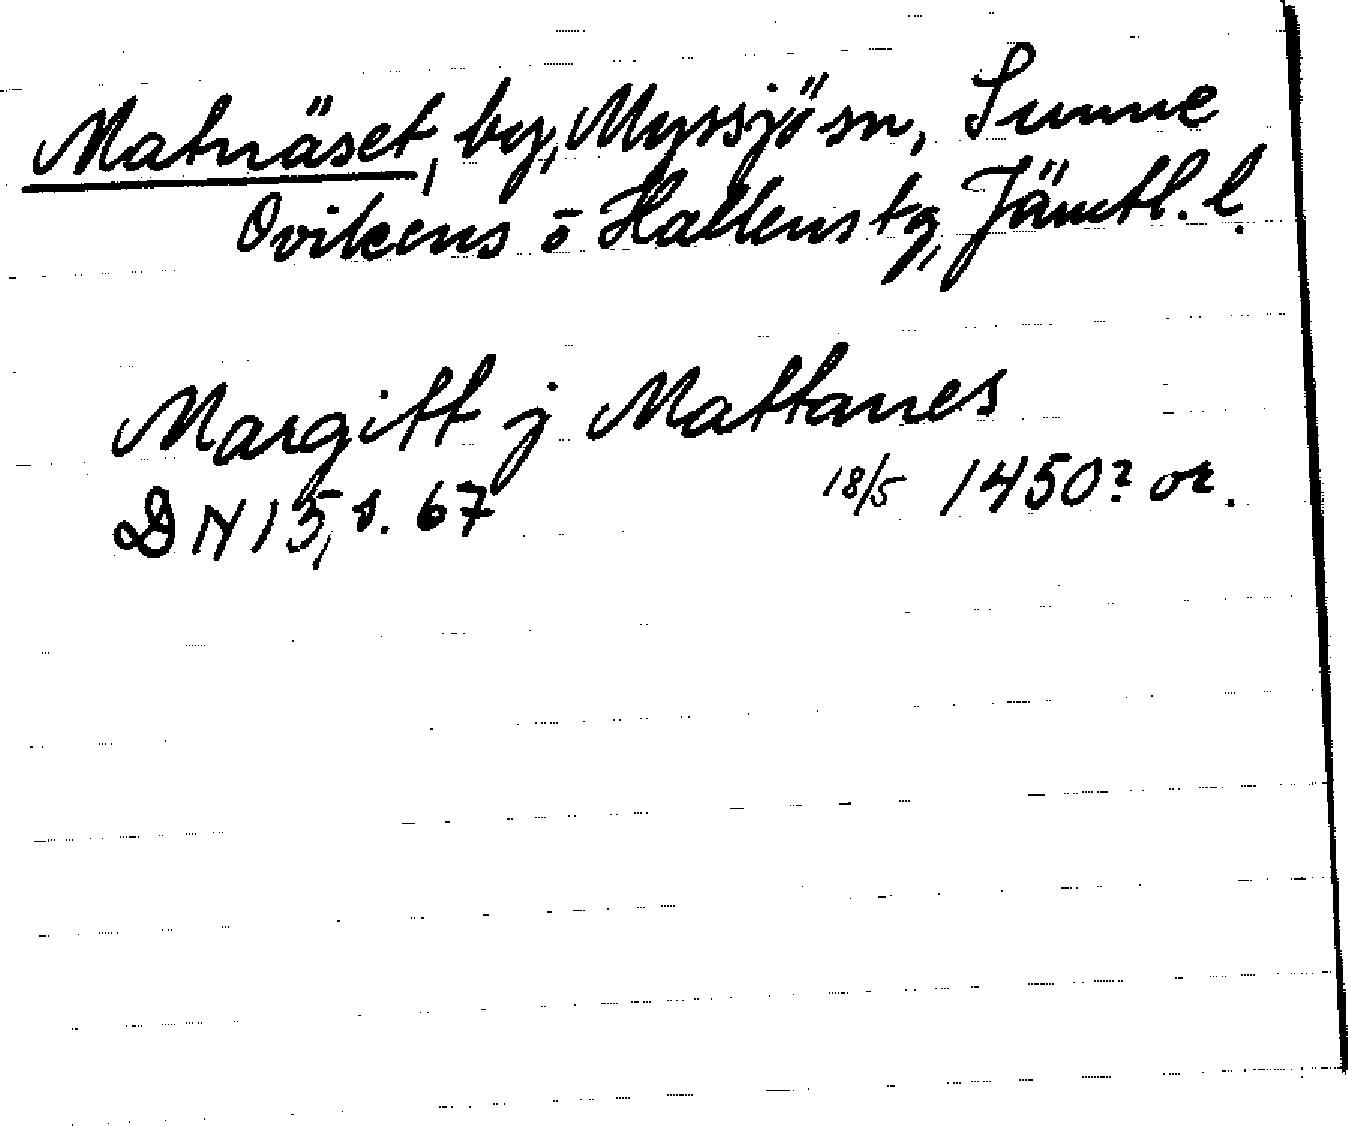 Matnäset, by, Myssjö sn, Sunne
Ovikens ō Hallens tg, Jämtl. l.
Margitt j Mattanes
DN 15, s. 67 18/5 1450? or.